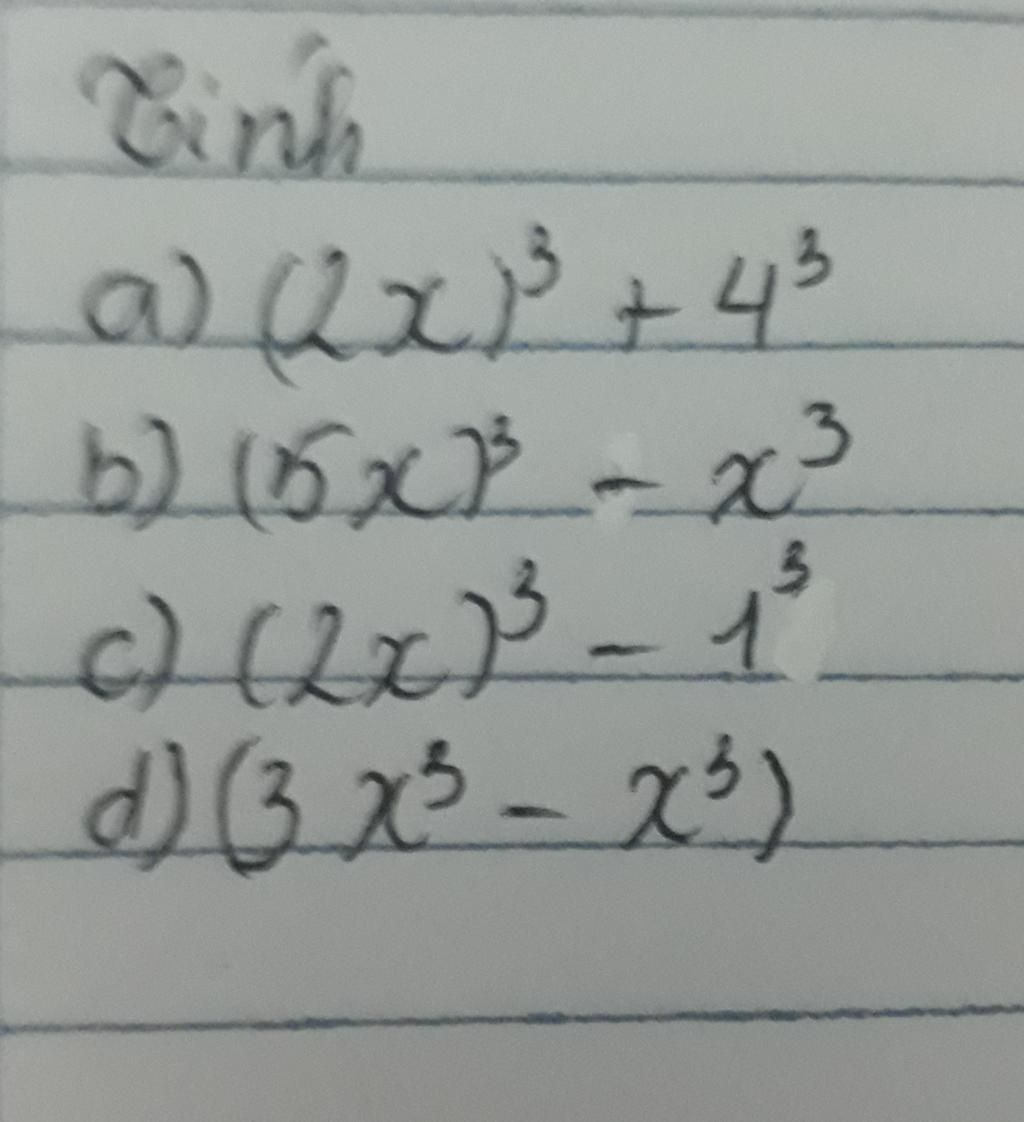 Tính
a) (2x)³ + 4³
b) (5x)³ - x³
c) (2x)³ - 1³
d) (3x³ - x³)